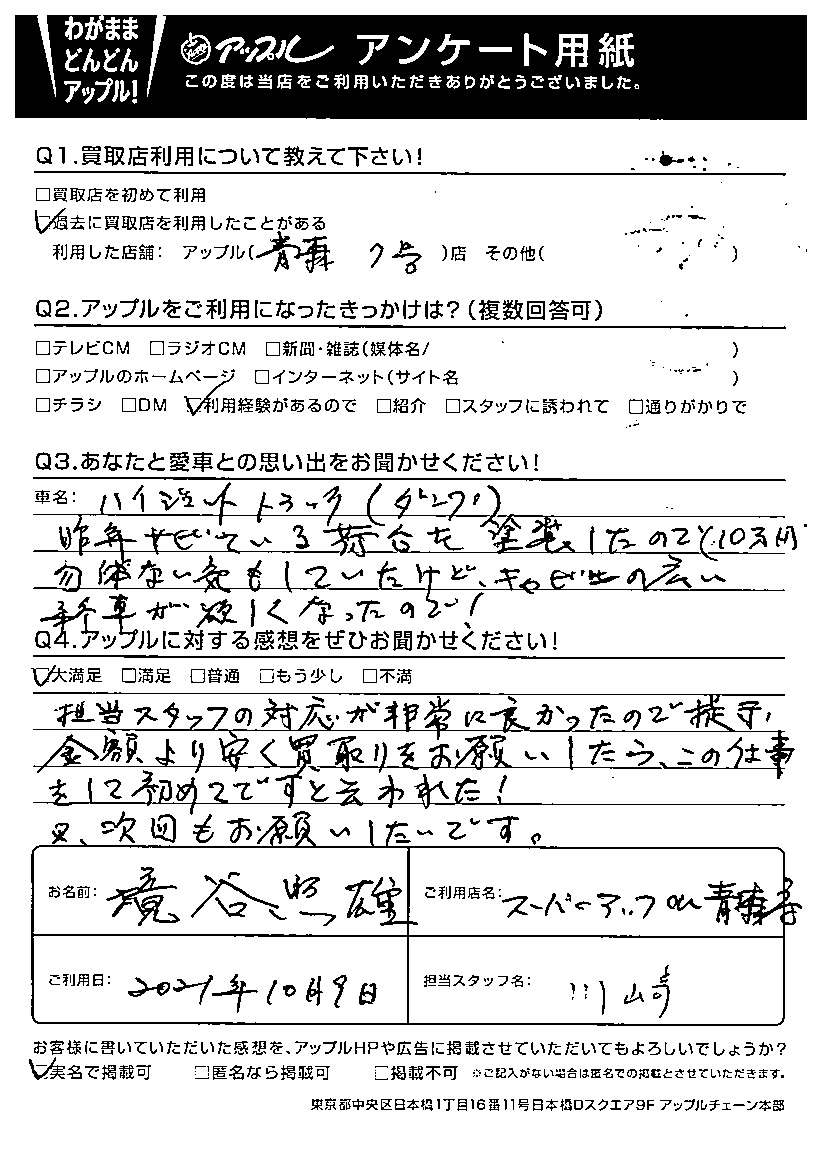 わがまま
どんどん
アップル!
アップル アンケート用紙
この度は当店をご利用いただきありがとうございました。
Q1.買取店利用について教えて下さい!
□買取店を初めて利用
☑過去に買取店を利用したことがある
利用した店舗: アップル(青森 7号 )店 その他( )
Q2.アップルをご利用になったきっかけは?(複数回答可)
□テレビCM □ラジオCM □新聞・雑誌(媒体名/ )
□アップルのホームページ □インターネット(サイト名 )
□チラシ □DM ☑利用経験があるので □紹介 □スタッフに誘われて □通りがかりで
Q3.あなたと愛車との思い出をお聞かせください!
車名: ハイジェット トラック(ダンプ)
昨年サビている荷台を塗装したので(10万円
勿体ない気もしていたけど、キャビンの広い
新車が欲しくなったので!
Q4.アップルに対する感想をぜひお聞かせください!
☑大満足 □満足 □普通 □もう少し □不満
担当スタッフの対応が非常に良かったので提示
金額より安く買取りをお願いしたら、この仕事
をして初めてですと云われた!
又、次回もお願いしたいです。
お名前: 境谷 照雄
ご利用店名: スーパーアップル青森
ご利用日: 2021年10月9日
担当スタッフ名: 川崎
お客様に書いていただいた感想を、アップルHPや広告に掲載させていただいてもよろしいでしょうか?
☑実名で掲載可 □匿名なら掲載可 □掲載不可 ※ご記入がない場合は匿名での掲載とさせていただきます。
東京都中央区日本橋1丁目16番11号日本橋Dスクエア9F アップルチェーン本部